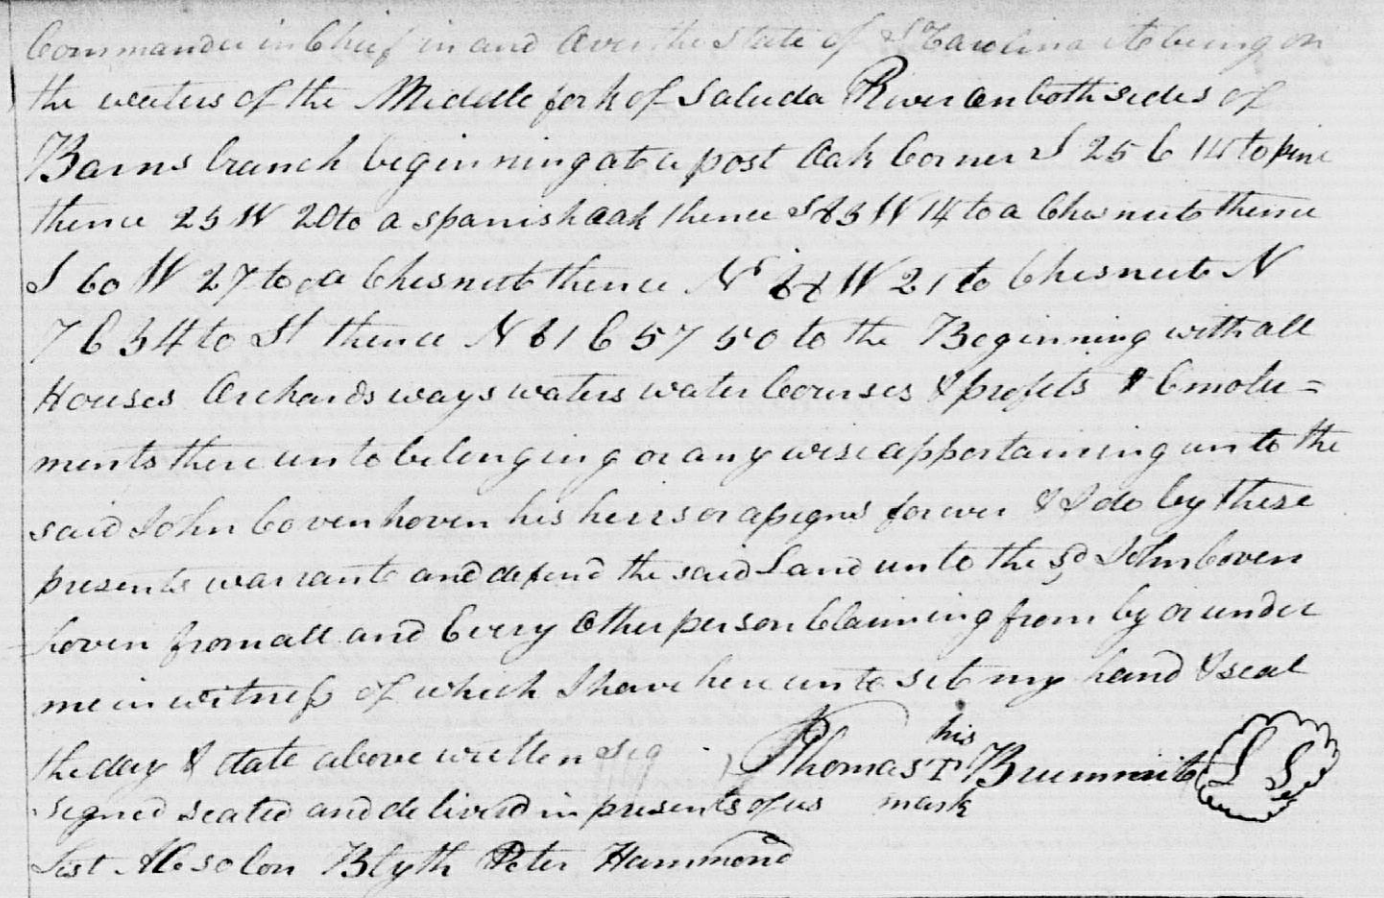 Commander in Chief in and Over the State of S Carolina it being on
the waters of the Middle fork of Saluda River on both sides of
Barns branch beginning at a post Oak Corner S 25 E 14 to pine
thence 25 W 20 to a spanish oak thence S 85 W 14 to a Chesnutt thence
S 60 W 27 to a Chesnutt thence N W 21 to Chesnutt N
7 E 34 to St thence N 81 E 57 50 to the Beginning with all
Houses Orchards ways waters water Courses & profits & Emolu=
ments there unto belenging or any wise appertaining unto the
said John Covenhoven his heirs or assigns forever & I do by these
presents warrante and defend the said Land unto the sd John Coven
hoven from all and Every Other person Claiming from by or under
me in witness of which I have here unto set my hand & seal
the day & date above written Sig
his
Thomas T Brummit L S
mark
signed sealed and deliverd in presents of us
Test Absolon Blyth Peter Hammond